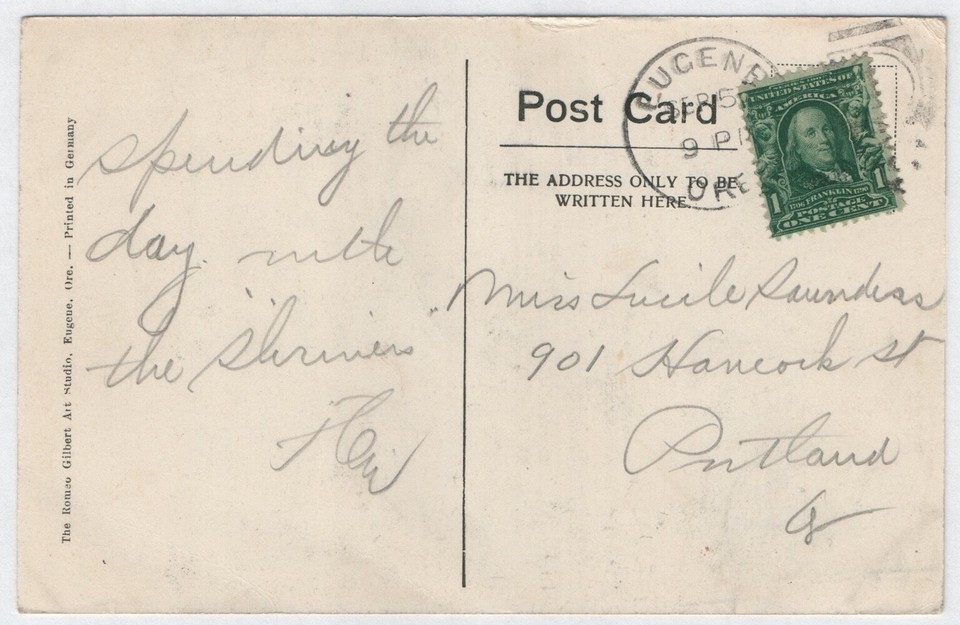 The Romeo Gilbert Art Studio, Eugene, Ore. — Printed in Germany
spending the
day with
the Shriners
Post Card
THE ADDRESS ONLY TO BE
WRITTEN HERE
EUGENE
SEP 5
9 P
ORE
UNITED STATES OF
AMERICA
1706 FRANKLIN 1790
1 1
POSTAGE
ONE CENT
Miss Lucile Saunders
901 Hancock St
Portland